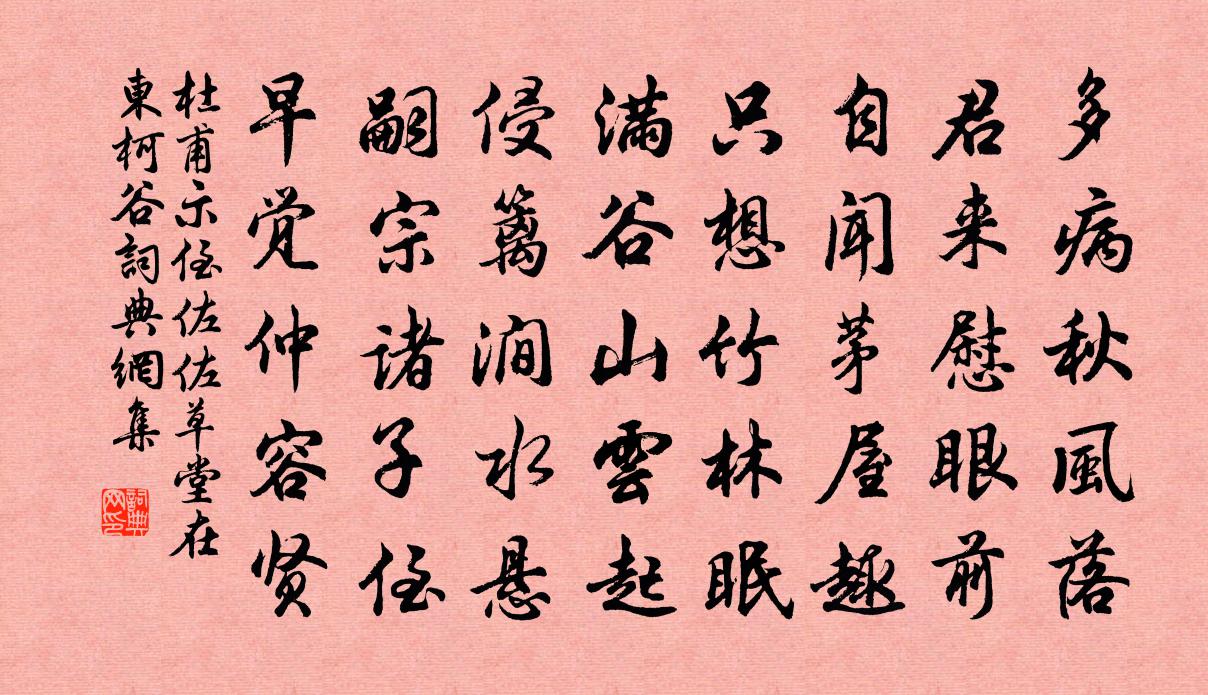 多病秋風落
君来慰眼前
自闻茅屋趣
只想竹林眠
满谷山雲起
侵篱澗水悬
嗣宗诸子侄
早觉仲容贤
杜甫示侄佐佐草堂在
東柯谷詞典網集
詞典网印